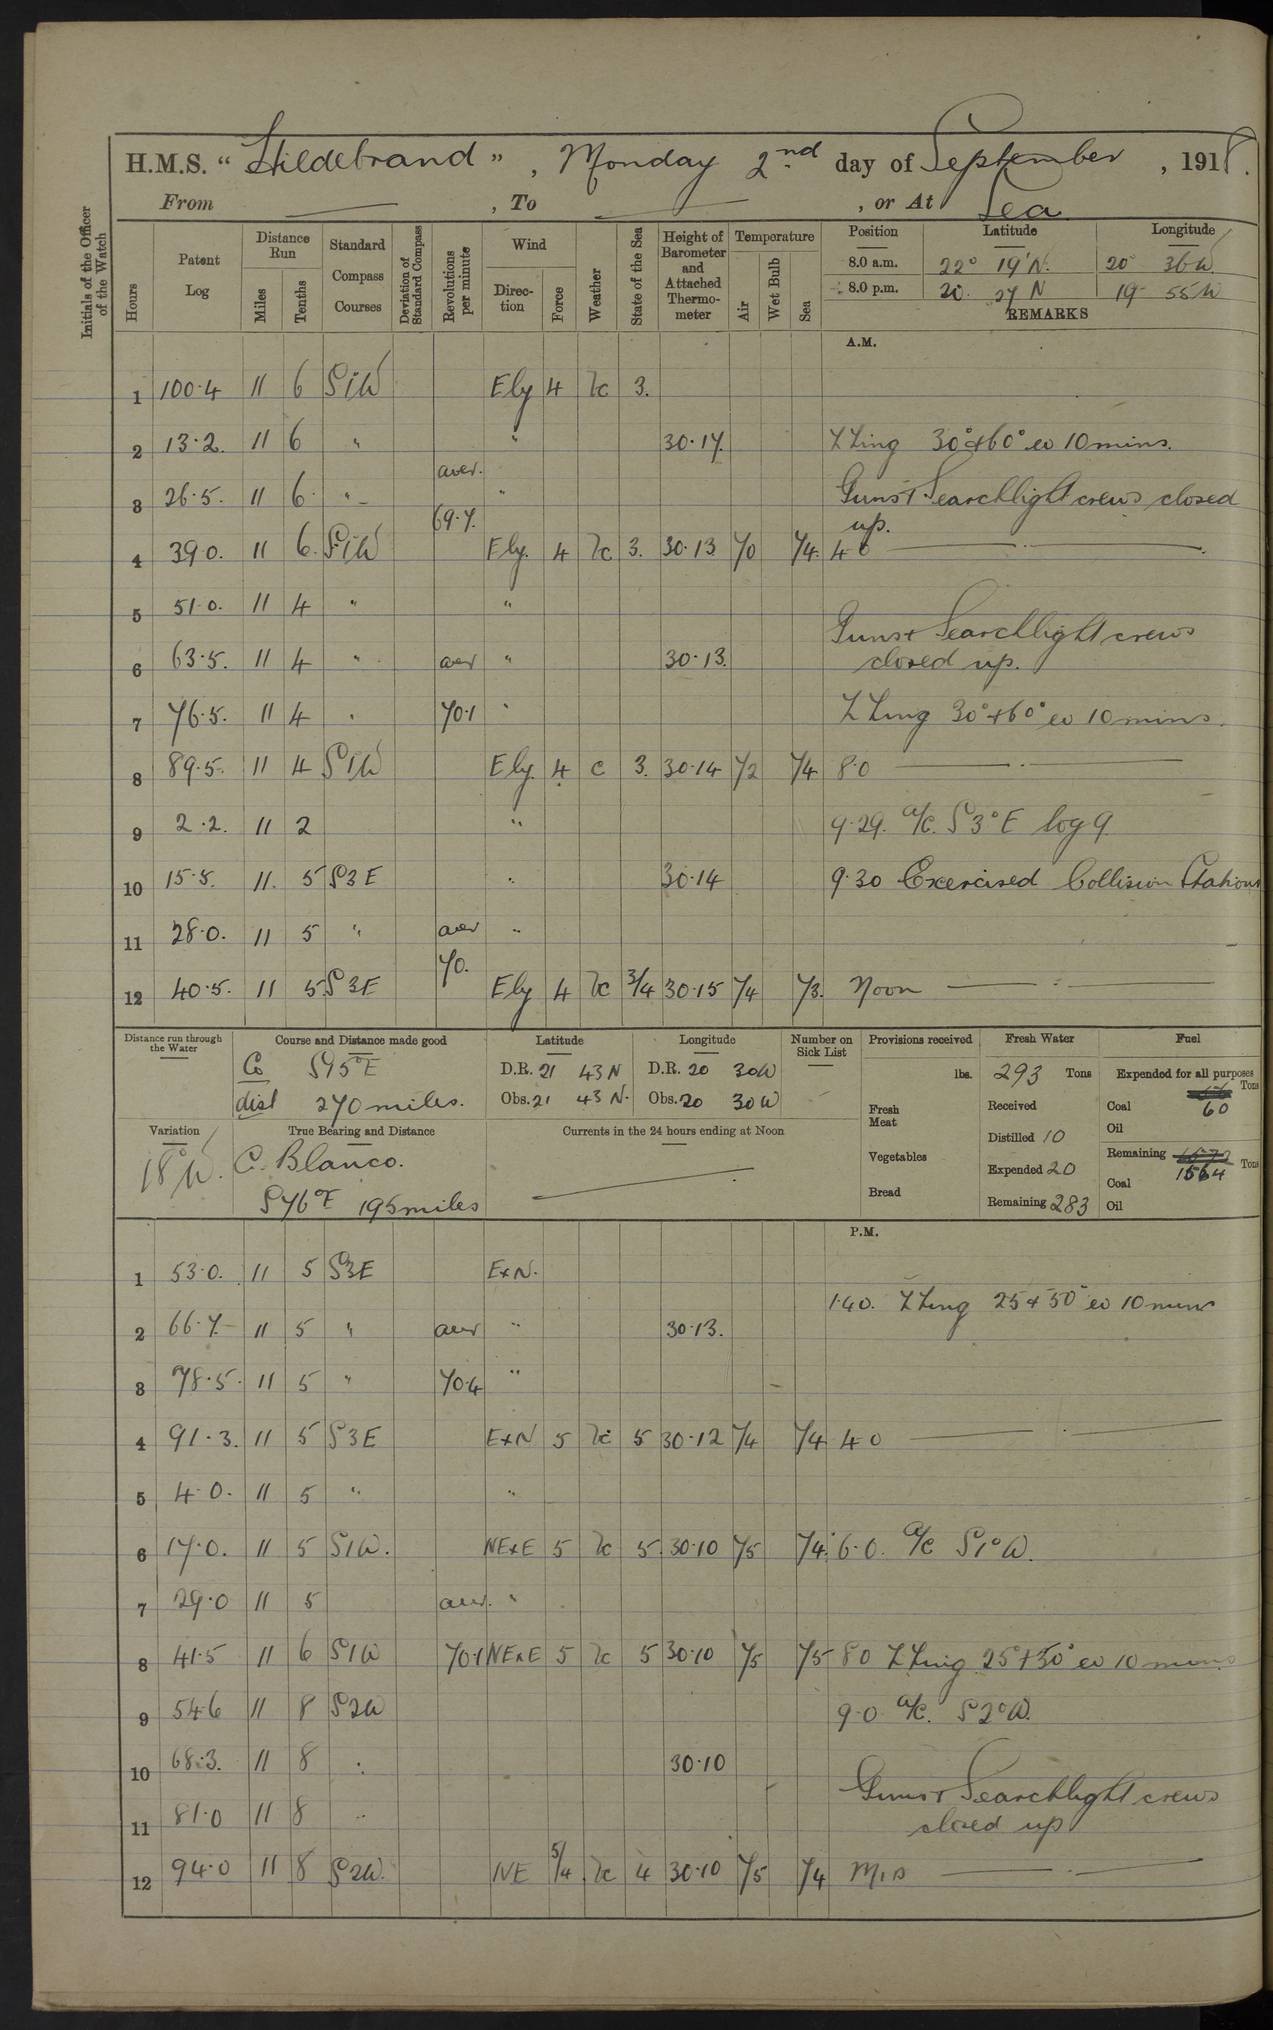 H.M.S. “Hildebrand”, Monday 2nd day of September, 1918.
From — , To — , or At Sea
Initials of the Officer of the Watch
Hours
Patent Log
Distance Run
Miles
Tenths
Standard Compass Courses
Deviation of Standard Compass
Revolutions per minute
Wind
Direction
Force
Weather
State of the Sea
Height of Barometer and Attached Thermometer
Temperature
Air
Wet Bulb
Sea
Position Latitude Longitude
8.0 a.m. 22° 19' N. 20° 36 W
8.0 p.m. 20. 27 N 19 55 W
REMARKS
A.M.
1 100.4 11 6 S1W Ely 4 bc 3.
2 13.2. 11 6 " " 30.17. ZZing 30° & 60° ev 10 mins.
aver.
3 26.5. 11 6 " " Guns & Searchlight crews closed
69.7. up.
4 39.0. 11 6. S1W Ely. 4 bc 3. 30.13 70 74. 4.0
5 51.0. 11 4 " "
Guns & Searchlight crews
6 63.5. 11 4 " aver " 30.13. closed up.
7 76.5. 11 4 " 70.1 " ZZing 30° & 60° ev 10 mins.
8 89.5. 11 4 S1W Ely. 4 c 3. 30.14 72 74 8.0
9 2.2. 11 2 " 9.29. a/c. S3°E log 9
10 15.5. 11. 5 S3E " 30.14 9.30 Exercised Collision Stations
11 28.0. 11 5 " aver "
70.
12 40.5. 11 5 S3E Ely 4 bc 3/4 30.15 74 73. Noon
Distance run through the Water
Course and Distance made good
Co S15°E
dist 270 miles.
Latitude
D.R. 21 43 N
Obs. 21 43 N.
Longitude
D.R. 20 30 W
Obs. 20 30 W
Number on Sick List
Provisions received
lbs.
Fresh Meat
Vegetables
Bread
Fresh Water
293 Tons
Received
Distilled 10
Expended 20
Remaining 283
Fuel
Expended for all purposes
Tons
Coal 60
Oil
Remaining Tons
Coal 1564
Oil
Variation
18° W.
True Bearing and Distance
C. Blanco.
S76°E 195 miles
Currents in the 24 hours ending at Noon
P.M.
1 53.0. 11 5 S3E ExN.
1.40. ZZing 25 & 50° ev 10 mins
2 66.7. 11 5 " aver " 30.13.
3 78.5. 11 5 " 70.4 "
4 91.3. 11 5 S3E ExN 5 bc 5 30.12 74 74 4.0
5 4.0. 11 5 " "
6 17.0. 11 5 S1W. NExE 5 bc 5. 30.10 75 74. 6.0. a/c S1°W.
7 29.0 11 5 aver. "
8 41.5 11 6 S1W 70.1 NExE 5 bc 5 30.10 75 75 8.0 ZZing 25° & 50° ev 10 mins
9 54.6 11 8 S2W 9.0 a/c. S2°W.
10 68.3. 11 8 " 30.10
Guns & Searchlight crews
11 81.0 11 8 " closed up
12 94.0 11 8 S2W. NE 5/4 bc 4 30.10 75 74 Mid